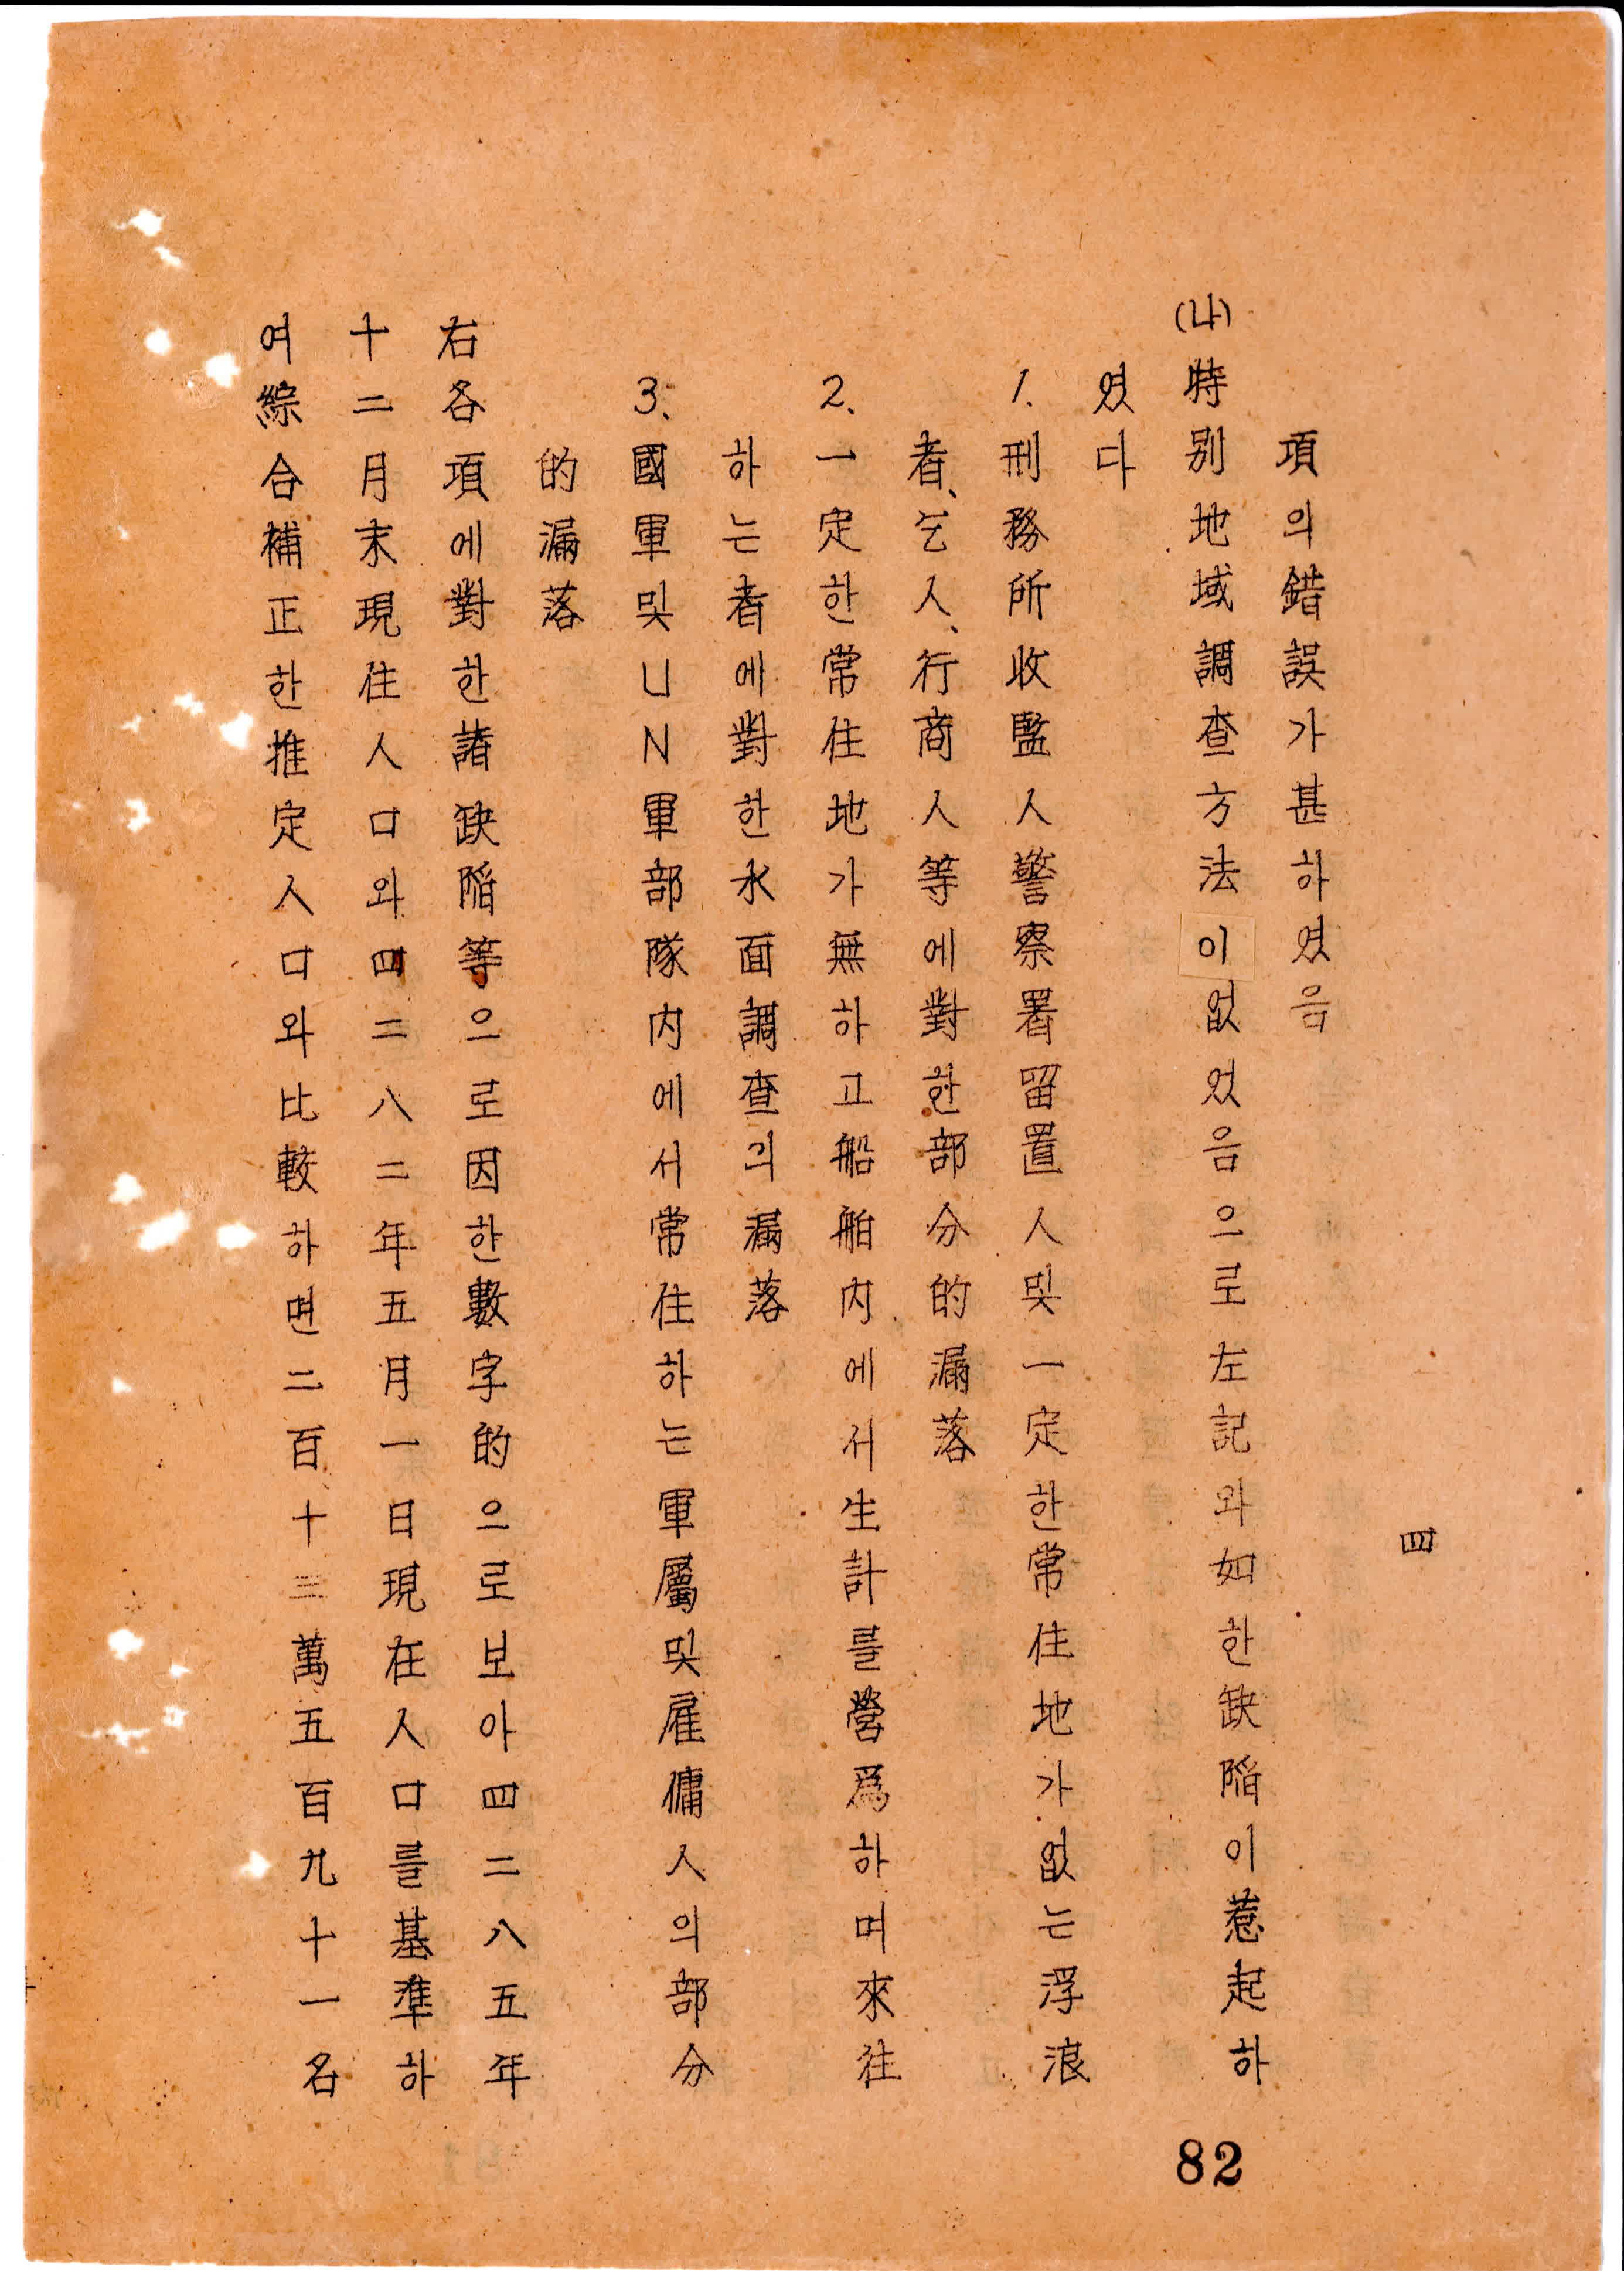 四
項의錯誤가甚하였음
(나)特別地域調查方法이없었음으로左記와如한缺陷이惹起하
였다
1.刑務所收監人警察署留置人및一定한常住地가없는浮浪
者、乞人、行商人等에對한部分的漏落
2、一定한常住地가無하고船舶內에서生計를營爲하며來往
하는者에對한水面調查의漏落
3、國軍및UN軍部隊內에서常住하는軍屬및雇傭人의部分
的漏落
右各項에對한諸缺陷等으로因한數字的으로보아四二八五年
十二月末現住人口와四二八二年五月一日現在人口를基準하
여綜合補正한推定人口와比較하면二百十三萬五百九十一名
82